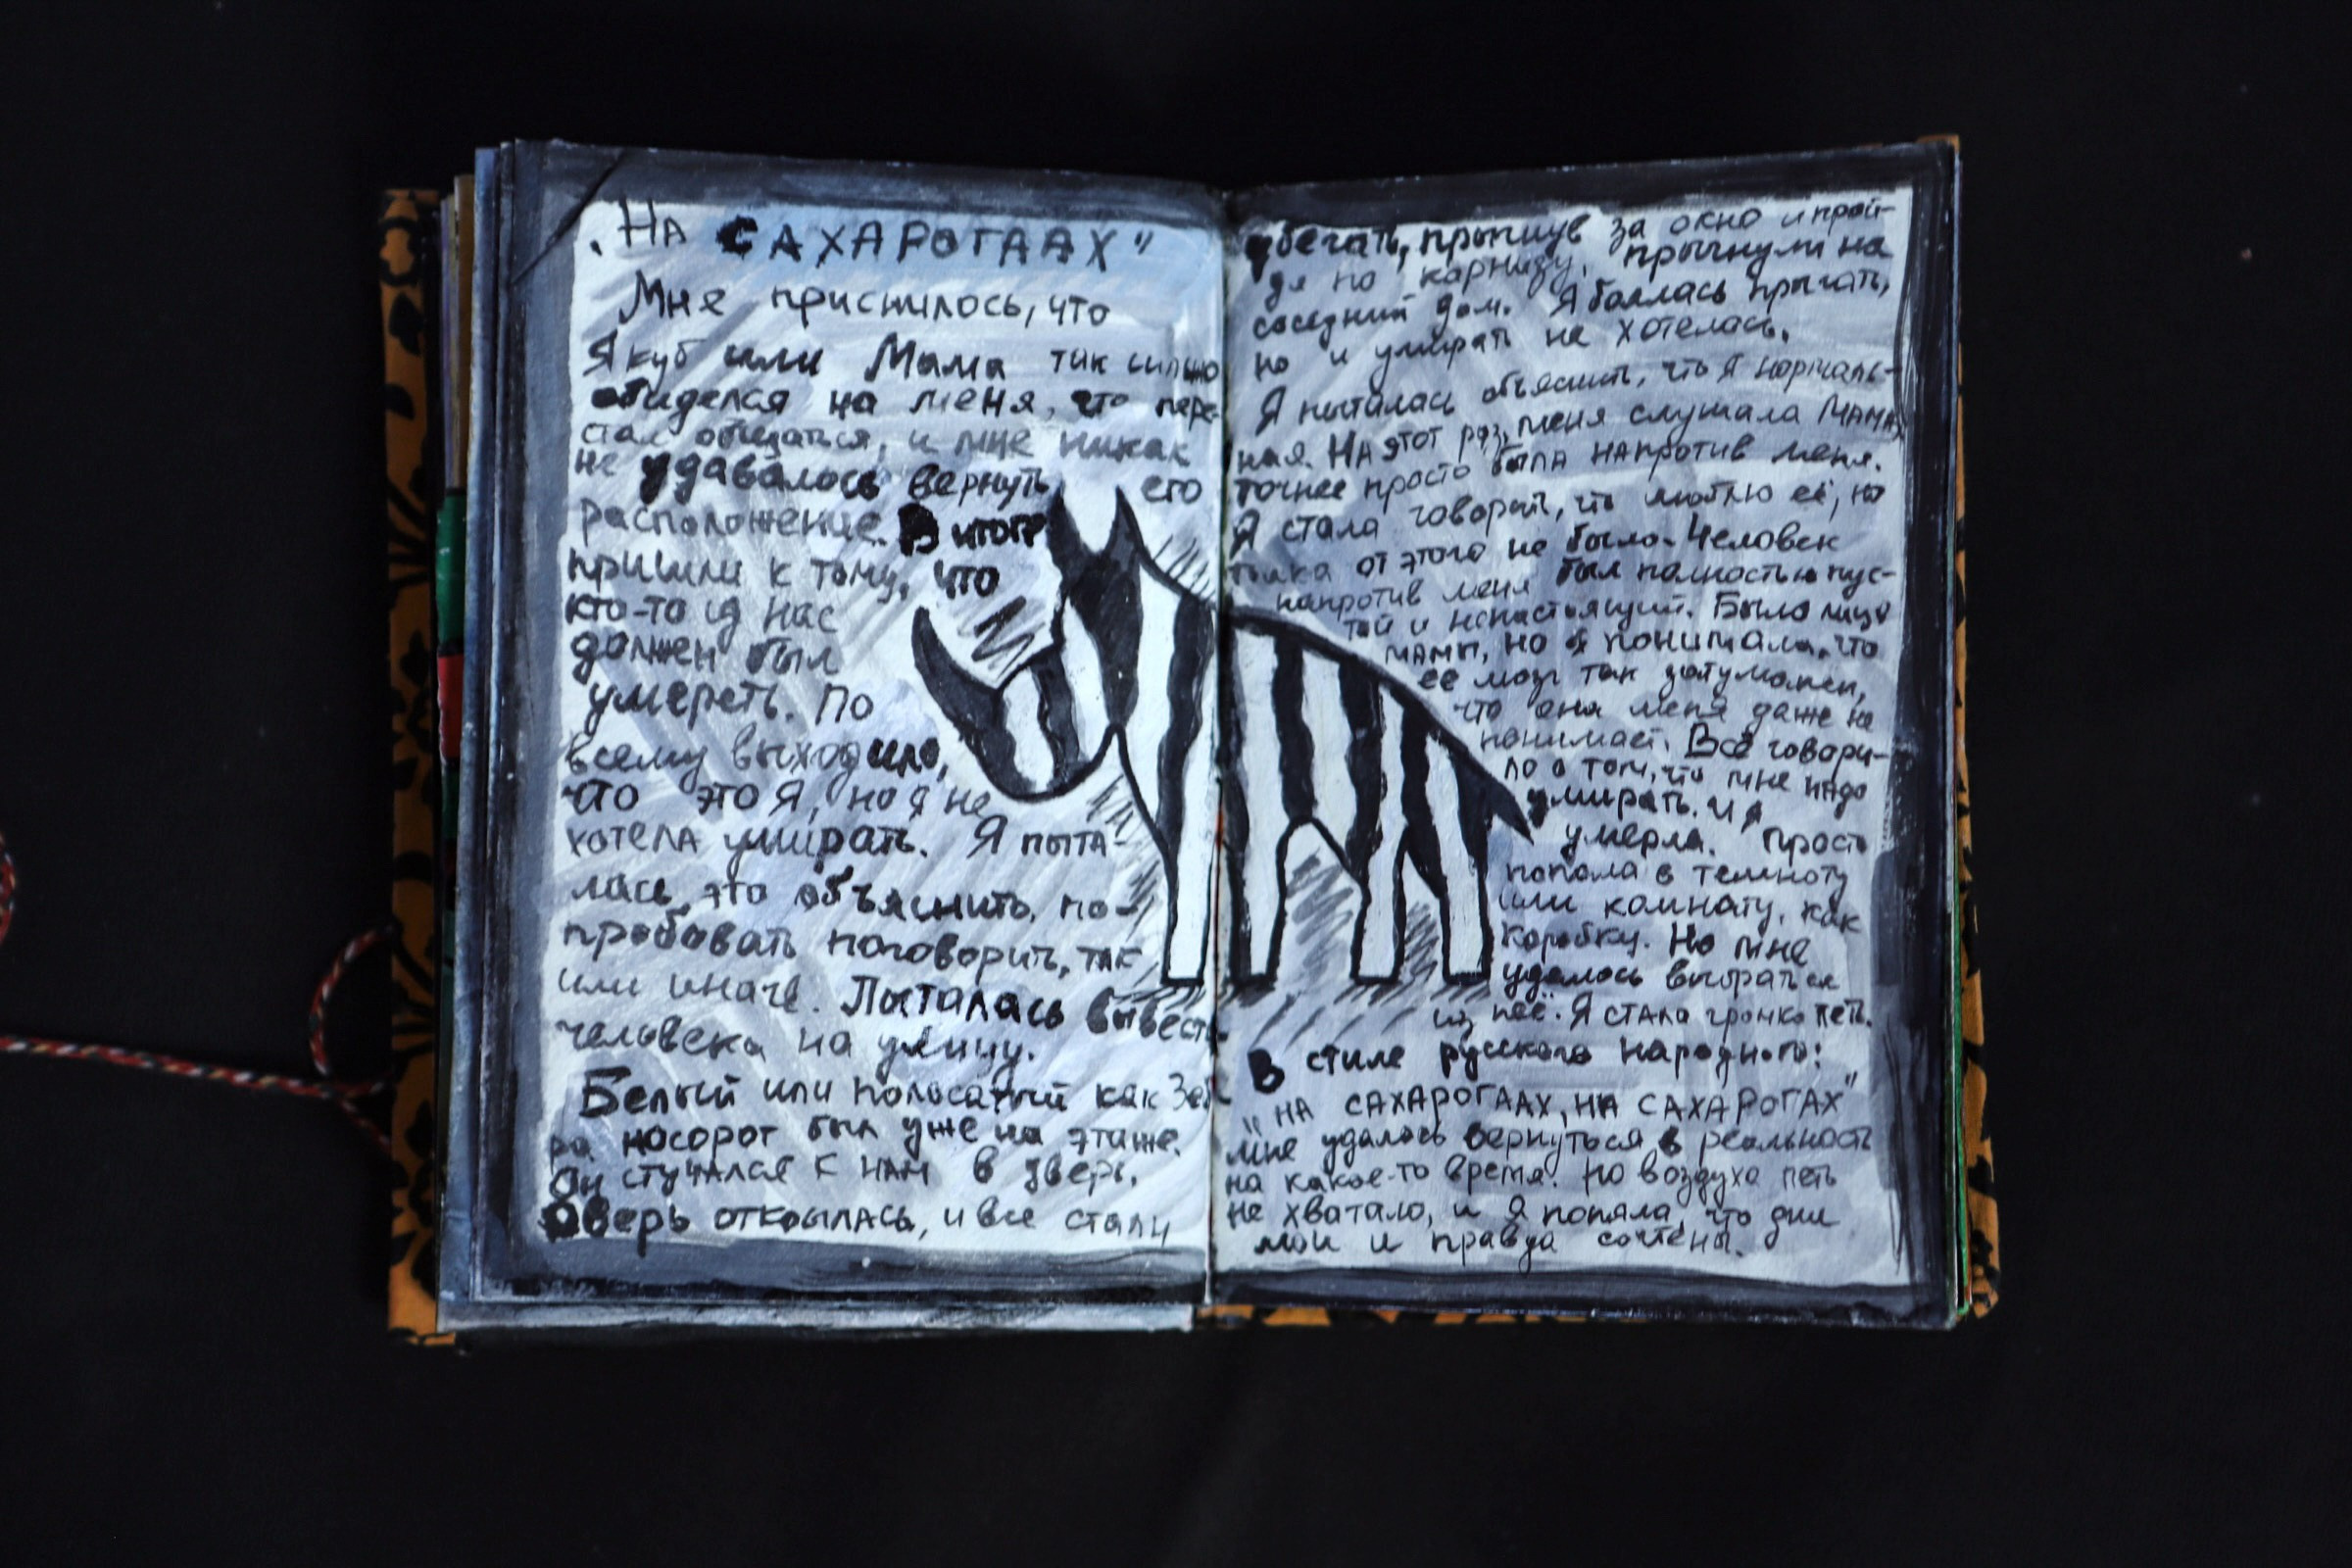 „На САХАРОГААХ"
Мне приснилось, что
Якуб или Мама так сильно
обиделся на меня, что пере-
стал общаться, и мне никак
не удавалось вернуть его
расположение. В итоге
пришли к тому, что
кто-то из нас
должен был
умереть. По
всему выходило,
что это Я, но я не
хотела умирать. Я пыта-
лась это объяснить, по-
пробовать поговорить, так
или иначе. Пыталась вывести
человека на улицу.
Белый или полосатый как Зеб
ра носорог был уже на этаже.
Он стучался к нам в дверь.
Дверь открылась, и все стали
убегать, прыгнув за окно и прой-
дя по карнизу, прыгнули на
соседний дом. Я боялась прыгать,
но и умирать не хотелась.
Я пыталась объяснить, что Я нормаль-
ная. На этот раз, меня слушала МАМА,
точнее просто была напротив меня.
Я стала говорить, что люблю её, но
толка от этого не было. Человек
напротив меня был полностью пус-
той и ненастоящий. Было лицо
мамы, но я понимала, что
её мозг так затуманен,
что она меня даже не
понимает. Всё говори-
ло о том, что мне надо
умирать. И я
умерла. Просто
попала в темноту
или комнату, как
коробку. Но мне
удалось выбраться
из неё. Я стала громко петь.
В стиле русского народного:
„НА САХАРОГААХ, НА САХАРОГАХ"
Мне удалось вернуться в реальность
на какое-то время. Но воздуха петь
не хватало, и Я поняла, что дни
мои и правда сочтены.